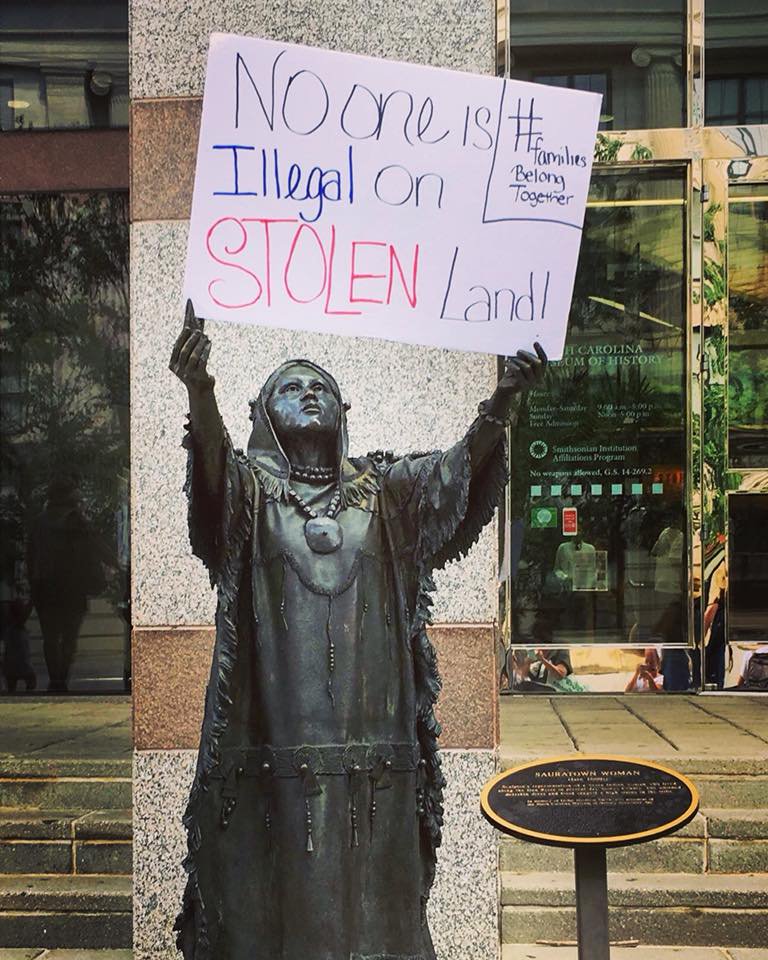 No one is
Illegal on
STOLEN Land!
#
families
Belong
Together
H CAROLINA
SEUM OF HISTORY
Hours
Monday-Saturday 9:00 a.m.-5:00 p.m.
Sunday Noon-5:00 p.m.
Free Admission
Smithsonian Institution
Affiliations Program
No weapons allowed, G.S. 14-269.2
SAURATOWN WOMAN